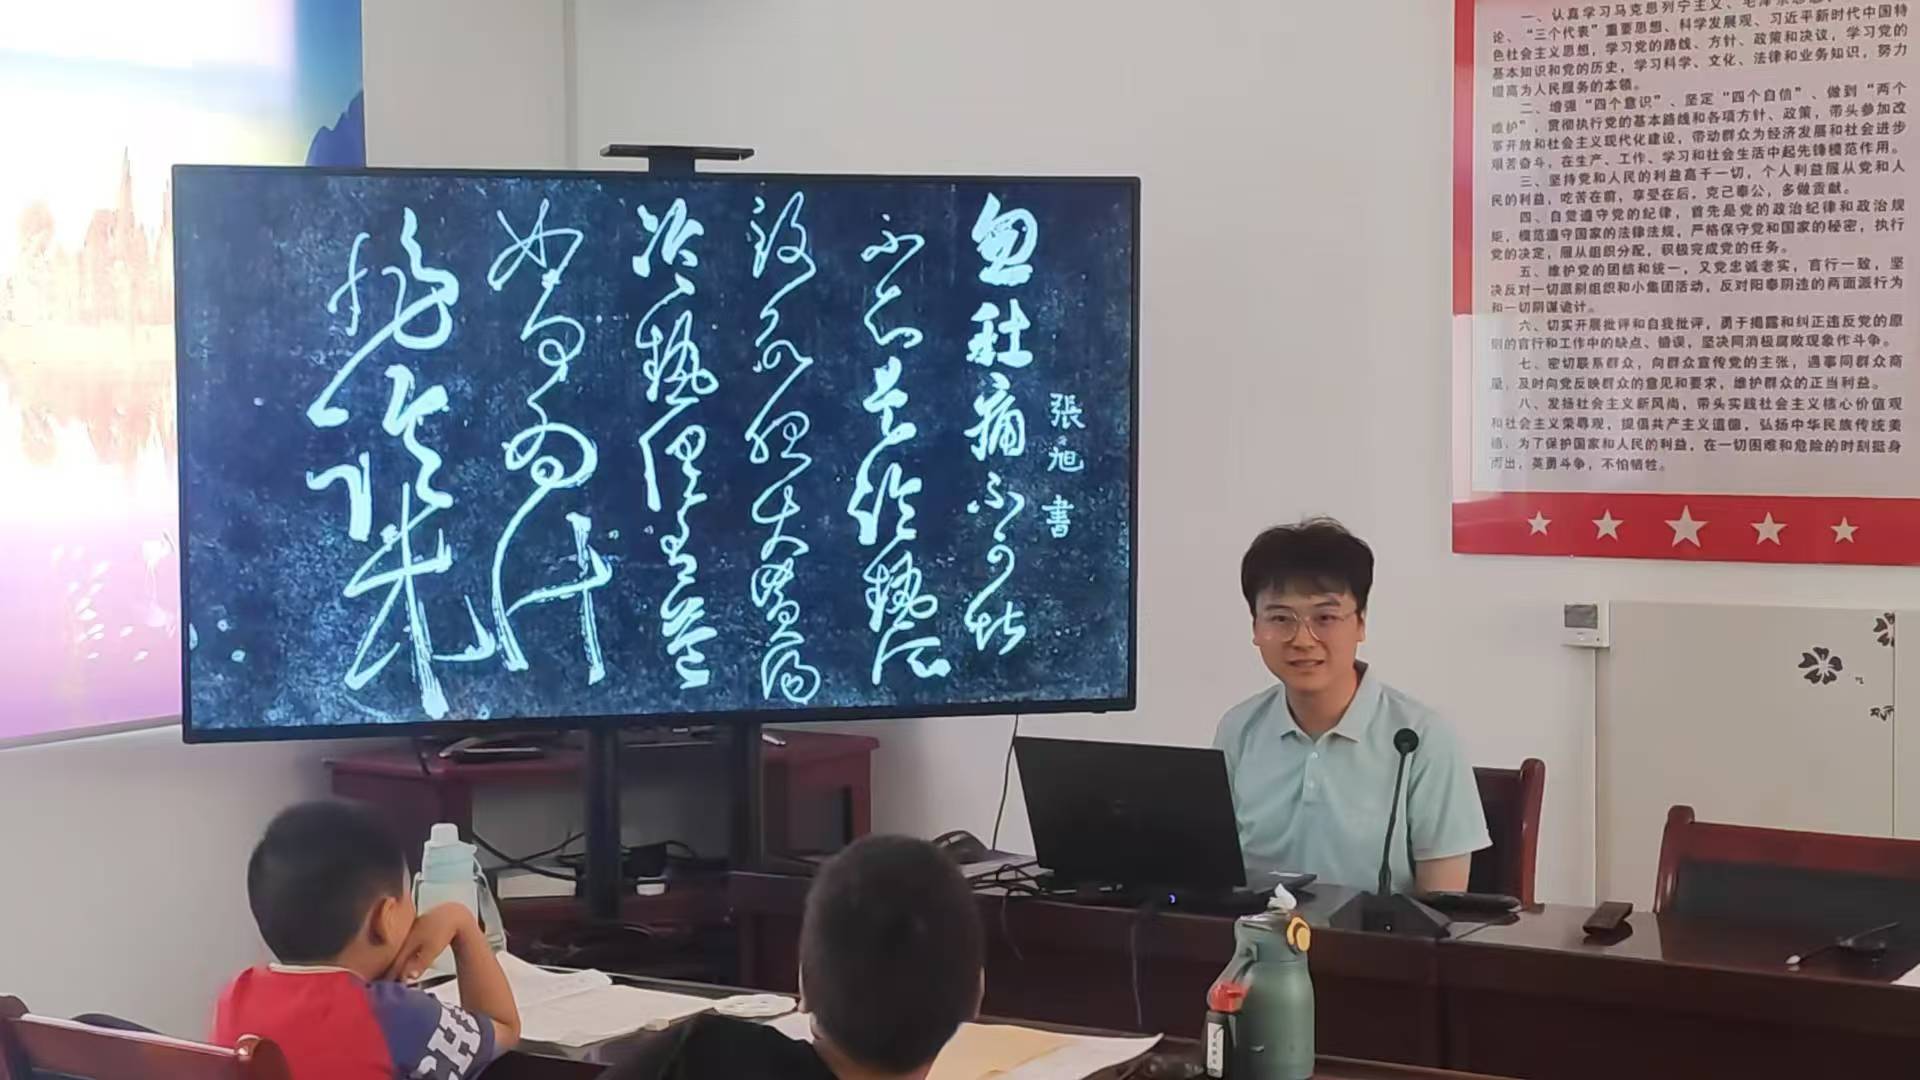 張旭書
忽肚痛不可堪
不知是冷熱所
致欲服大黃湯
冷熱俱有益
如何為計
非臨床
一、认真学习马克思列宁主义、毛泽东思想、
论、“三个代表”重要思想、科学发展观、习近平新时代中国特
色社会主义思想，学习党的路线、方针、政策和决议，学习党的
基本知识和党的历史，学习科学、文化、法律和业务知识，努力
提高为人民服务的本领。
二、增强“四个意识”、坚定“四个自信”、做到“两个
维护”，贯彻执行党的基本路线和各项方针、政策，带头参加改
革开放和社会主义现代化建设，带动群众为经济发展和社会进步
艰苦奋斗，在生产、工作、学习和社会生活中起先锋模范作用。
三、坚持党和人民的利益高于一切，个人利益服从党和人
民的利益，吃苦在前，享受在后，克己奉公，多做贡献。
四、自觉遵守党的纪律，首先是党的政治纪律和政治规
矩，模范遵守国家的法律法规，严格保守党和国家的秘密，执行
党的决定，服从组织分配，积极完成党的任务。
五、维护党的团结和统一，对党忠诚老实，言行一致，坚
决反对一切派别组织和小集团活动，反对阳奉阴违的两面派行为
和一切阴谋诡计。
六、切实开展批评和自我批评，勇于揭露和纠正违反党的原
则的言行和工作中的缺点、错误，坚决同消极腐败现象作斗争。
七、密切联系群众，向群众宣传党的主张，遇事同群众商
量，及时向党反映群众的意见和要求，维护群众的正当利益。
八、发扬社会主义新风尚，带头实践社会主义核心价值观
和社会主义荣辱观，提倡共产主义道德，弘扬中华民族传统美
德，为了保护国家和人民的利益，在一切困难和危险的时刻挺身
而出，英勇斗争，不怕牺牲。